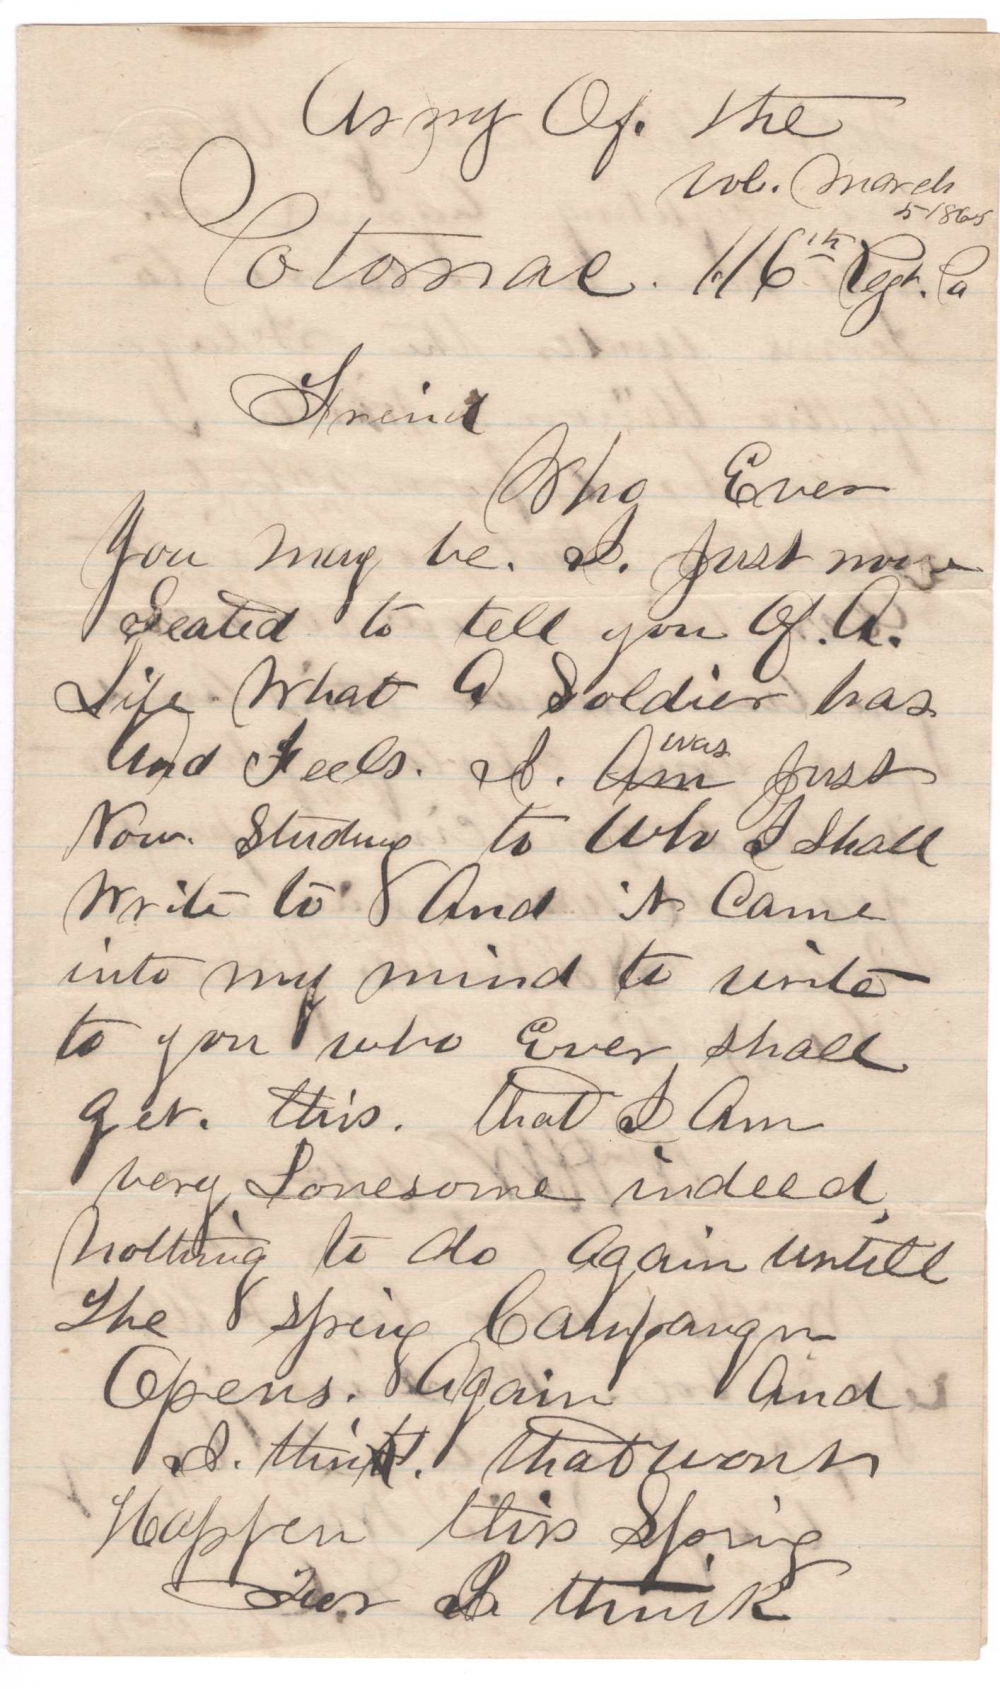 Army Of. the
Vol. March
5 1865
Potomac. 116th Regt. Pa
Friend
Who Ever
You may be. I. just now
Seated to tell you Of. A.
Life What A Soldier has
And Feels. I. Am was just
Now. Studing to Who I Shall
Write to & And it Came
into my mind to write
to you who Ever shall
get. this. that I Am
very Lonesome indeed,
Nothing to do Again untill
The Spring Campaugn
Opens. Again And
I. think. that wont
Happen this Spring
For I. think